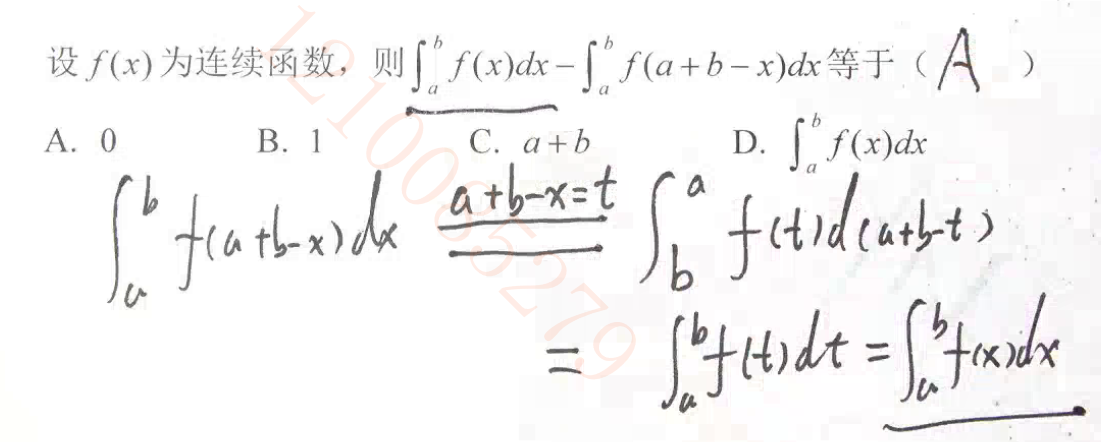 设 f(x) 为连续函数，则 ∫_a^b f(x)dx − ∫_a^b f(a+b−x)dx 等于（ A ）
A. 0 B. 1 C. a+b D. ∫_a^b f(x)dx
∫_a^b f(a+b-x)dx \overset{a+b-x=t}{=} ∫_b^a f(t)d(a+b-t)
= ∫_a^b f(t)dt = ∫_a^b f(x)dx
1210085279